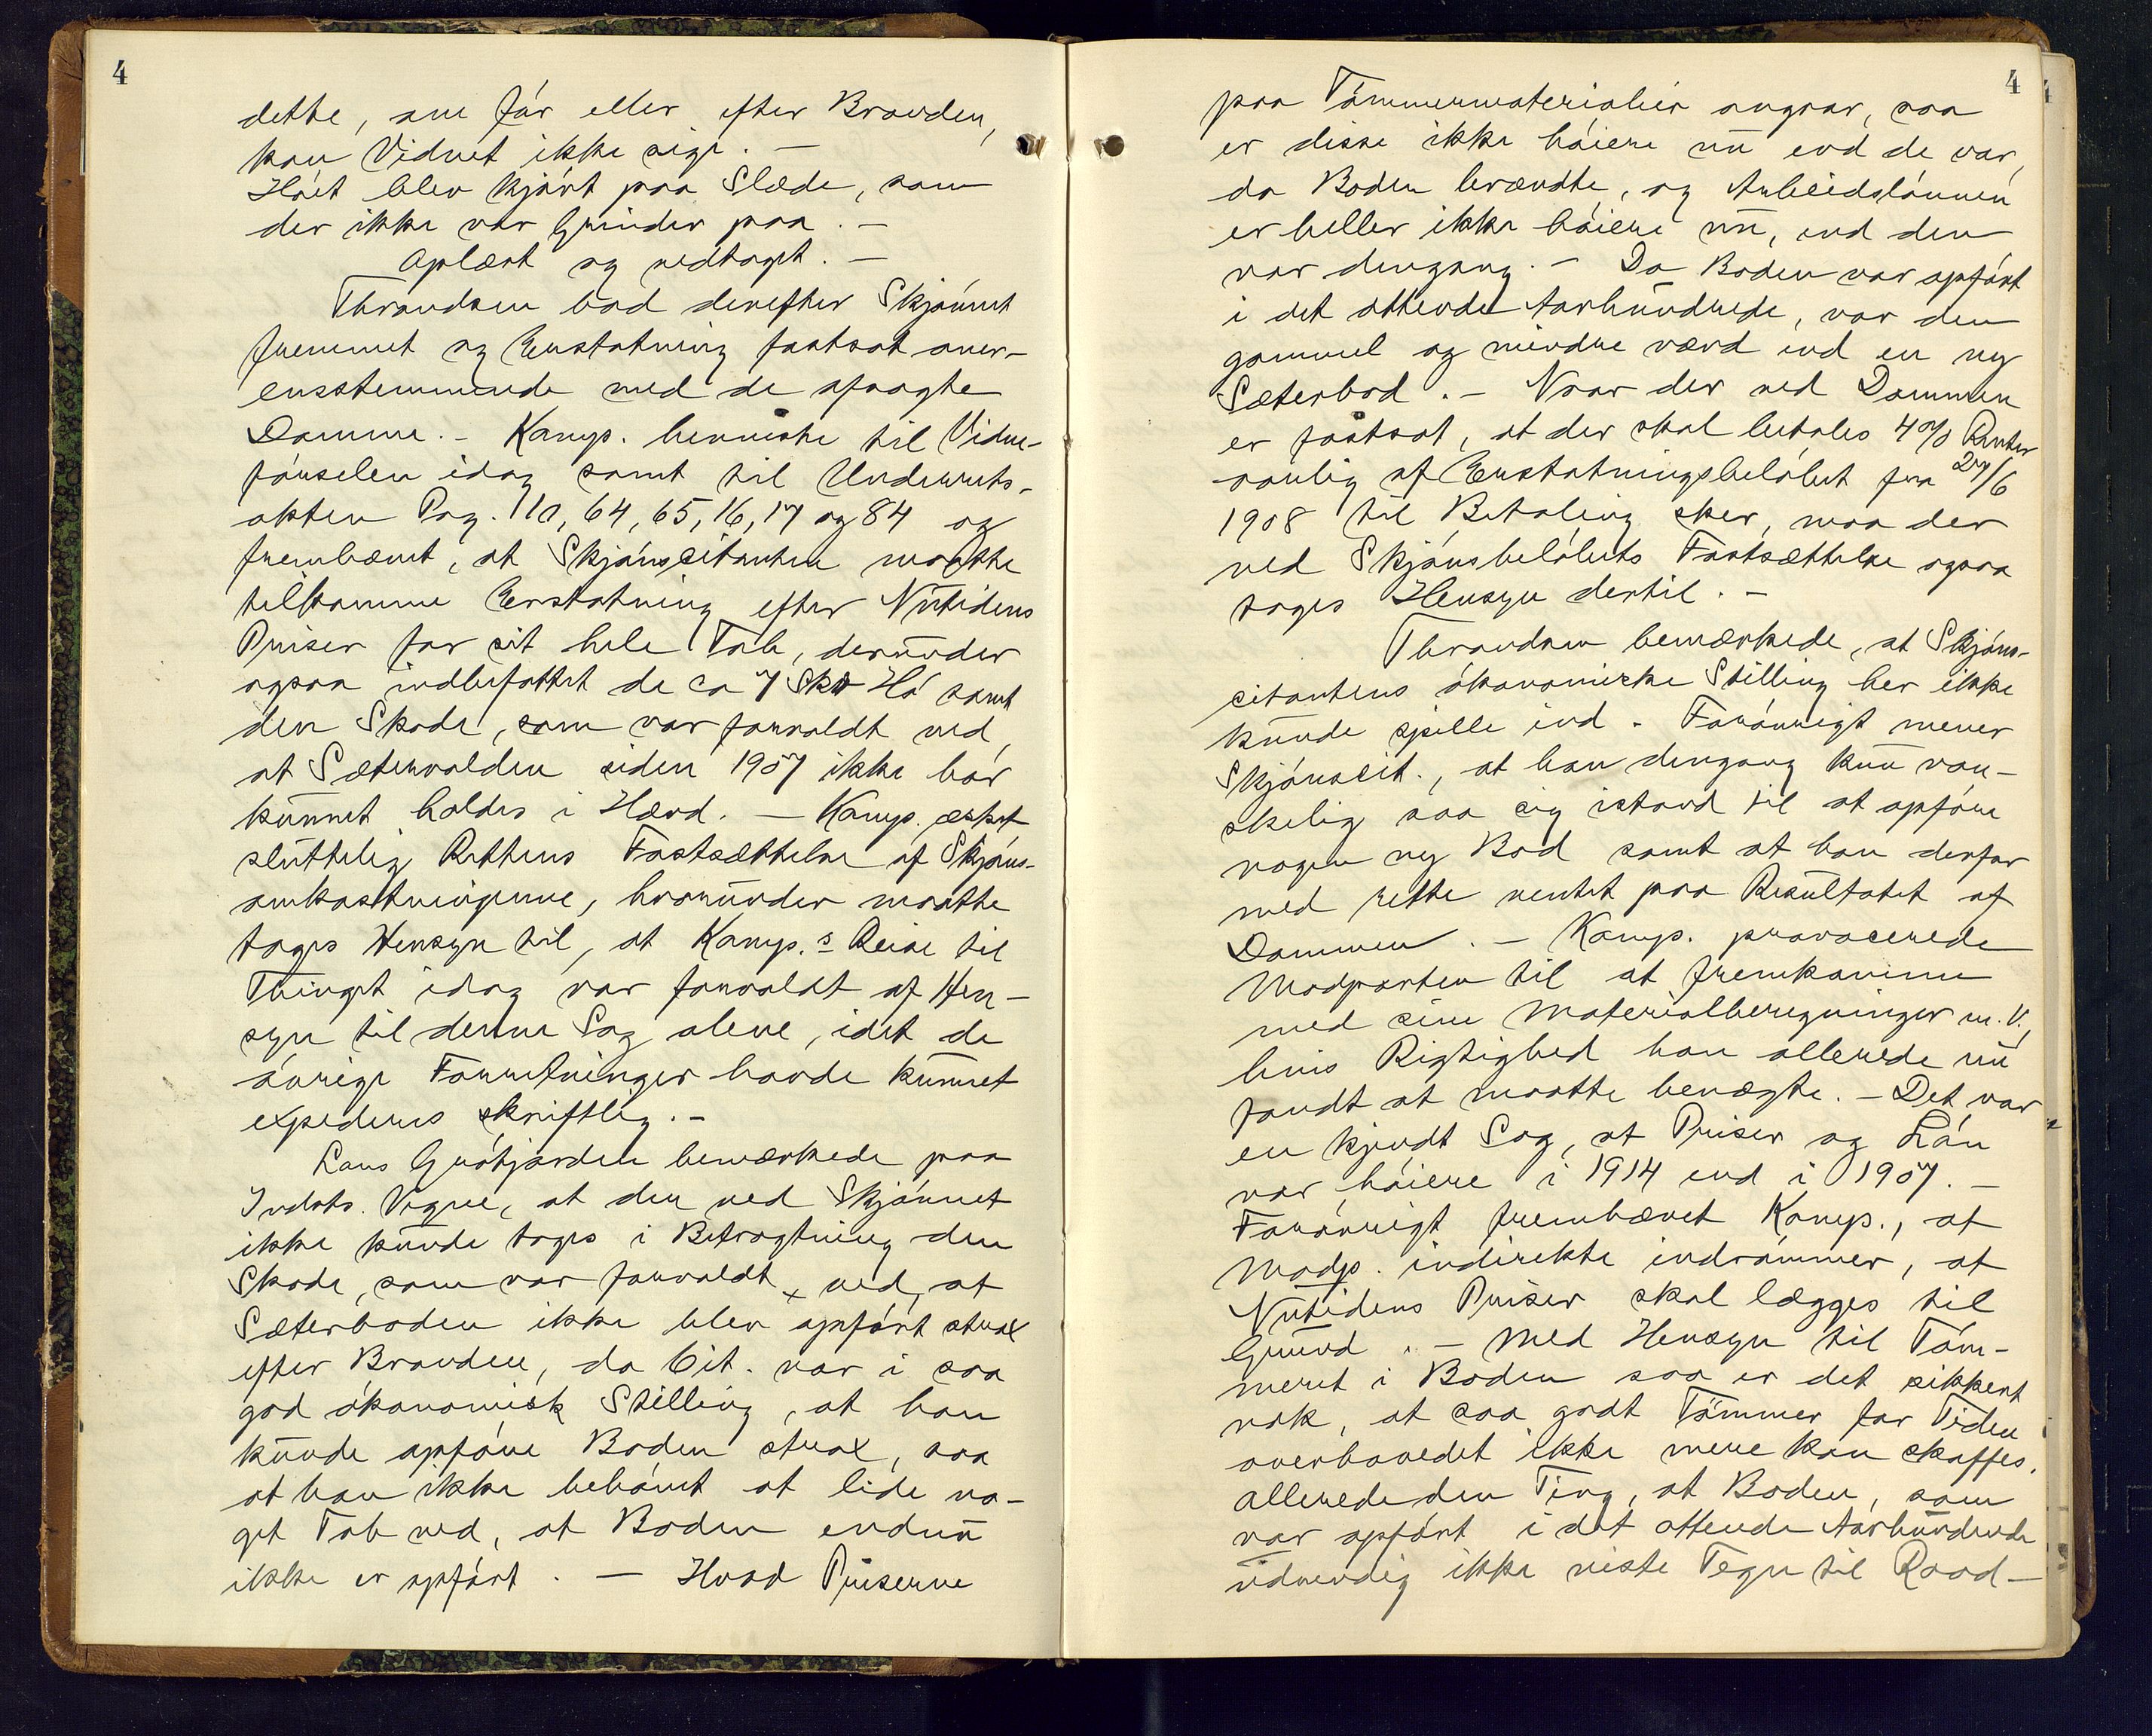 4
dette, om før eller efter Branden,
kan Vidnet ikke sige. —
Høet blev kjørt paa Slæde, som
der ikke var Grinder paa. —
Oplæst og vedtaget. —
Thrandsen bad derefter Skjønnet
fremmet og Erstatning fastsat over-
ensstemmende med de afsagte
Domme. — Komp. henviste til Vidne-
førselen idag samt til Underrets-
akten Pag. 11a, 64, 65, 16, 17 og 84 og
fremhævet, at Skjønscitanten maatte
tilkomme Erstatning efter Nutidens
Priser for sit hele Tab, derunder
ogsaa indbefattet de ca 7 Sk Hø samt
den Skade, som var forvoldt ved,
at Sætervolden siden 1907 ikke har
kunnet holdes i Hævd. — Komp. æsket
sluttelig Rettens Fastsættelse af Skjøns-
omkostningerne, hvorunder maatte
tages Hensyn til, at Komp.s Reise til
Thinget idag var forvoldt af Hen-
syn til denne Sag alene, idet de
øvrige Forretninger havde kunnet
expederes skriftlig. —
Lars Grøtjorden bemærkede paa
Indsts. Vegne, at der ved Skjønnet
ikke kunde tages i Betragtning den
Skade, som var forvoldt x ved, at
Sæterboden ikke blev opført strax
efter Branden, da Cit. var i saa
god økonomisk Stilling, at han
kunde opføre Boden strax, saa
at han ikke behøvet at lide no-
get Tab ved, at Boden endnu
ikke er opført. — Hvad Priserne
4
paa Tømmermaterialier angaar, saa
er disse ikke høiere nu end de var,
da Boden brændte, og Arbeidslønnen
er heller ikke høiere nu, end den
var dengang. — Da Boden var opført
i det attende Aarhundrede, var den
gammel og mindre værd end en ny
Sæterbod. — Naar der ved Dommen
er fastsat, at der skal betales 4 % Renter
aarlig af Erstatningsbeløbet fra 27/6
1908 til Betaling sker, maa der
ved Skjønsbeløbets Fastsættelse ogsaa
tages Hensyn dertil. —
Thrandsen bemærkede, at Skjøns-
citantens økonomiske Stilling her ikke
kunde spille ind. Forøvrigt mener
Skjønscit., at han dengang kun van-
skelig saa sig istand til at opføre
nogen ny Bod samt at han derfor
med rette ventet paa Resultatet af
Dommen. — Komp. provocerede
Modparten til at fremkomme
med sine Materialberegninger m. v.,
hvis Rigtighed han allerede nu
fandt at maatte benægte. — Det var
en kjendt Sag, at Priser og Løn
var høiere i 1914 end i 1907. —
Forøvrigt fremhævet Komp., at
Modp. indirekte indrømmer, at
Nutidens Priser skal lægges til
Grund. — Med Hensyn til Tøm-
meret i Boden saa er det sikkert
nok, at saa godt Tømmer for Tiden
overhovedet ikke mere kan skaffes,
allerede den Ting, at Boden, som
var opført i det attende Aarhundrede
udvendig ikke viste Tegn til Raad-